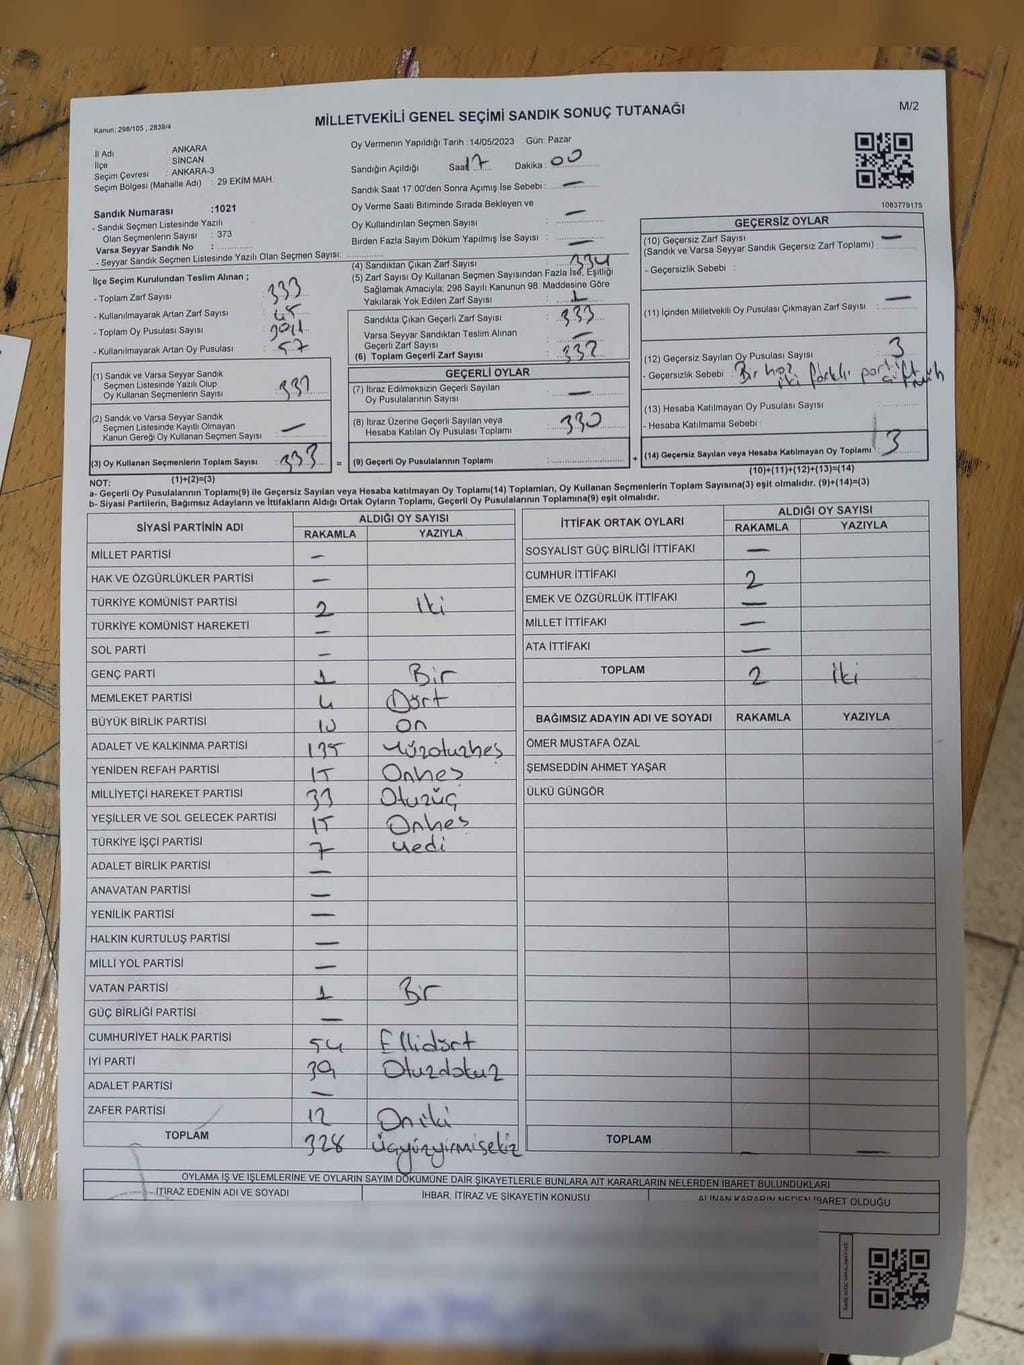 MİLLETVEKİLİ GENEL SEÇİMİ SANDIK SONUÇ TUTANAĞI
M/2
Kanun: 298/105 , 2839/4
İl Adı ANKARA
İlçe SİNCAN
Seçim Çevresi : ANKARA-3
Seçim Bölgesi (Mahalle Adı) : 29 EKIM MAH.
Oy Vermenin Yapıldığı Tarih :14/05/2023 Gün: Pazar
Sandığın Açıldığı Saat 17 Dakika 00
Sandık Saat 17:00'den Sonra Açımış İse Sebebi : —
Oy Verme Saati Bitiminde Sırada Bekleyen ve
Oy Kullandırılan Seçmen Sayısı : —
Birden Fazla Sayım Döküm Yapılmış İse Sayısı : —
1083779175
Sandık Numarası :1021
- Sandık Seçmen Listesinde Yazılı
Olan Seçmenlerin Sayısı : 373
Varsa Seyyar Sandık No :
- Seyyar Sandık Seçmen Listesinde Yazılı Olan Seçmen Sayısı:
İlçe Seçim Kurulundan Teslim Alınan ;
- Toplam Zarf Sayısı :
- Kullanılmayarak Artan Zarf Sayısı :
- Toplam Oy Pusulası Sayısı :
- Kullanılmayarak Artan Oy Pusulası : 57
(1) Sandık ve Varsa Seyyar Sandık
Seçmen Listesinde Yazılı Olup
Oy Kullanan Seçmenlerin Sayısı :
(2) Sandık ve Varsa Seyyar Sandık
Seçmen Listesinde Kayıtlı Olmayan
Kanun Gereği Oy Kullanan Seçmen Sayısı : —
(3) Oy Kullanan Seçmenlerin Toplam Sayısı : 333
(1)+(2)=(3)
(4) Sandıktan Çıkan Zarf Sayısı : 334
(5) Zarf Sayısı Oy Kullanan Seçmen Sayısından Fazla İse, Eşitliği
Sağlamak Amacıyla; 298 Sayılı Kanunun 98. Maddesine Göre
Yakılarak Yok Edilen Zarf Sayısı : 1
Sandıkta Çıkan Geçerli Zarf Sayısı : 333
Varsa Seyyar Sandıktan Teslim Alınan
Geçerli Zarf Sayısı : —
(6) Toplam Geçerli Zarf Sayısı :
GEÇERLİ OYLAR
(7) İtiraz Edilmeksizin Geçerli Sayılan
Oy Pusulalarının Sayısı : —
(8) İtiraz Üzerine Geçerli Sayılan veya
Hesaba Katılan Oy Pusulası Toplamı : 330
= (9) Geçerli Oy Pusulalarının Toplamı : +
GEÇERSİZ OYLAR
(10) Geçersiz Zarf Sayısı —
(Sandık ve Varsa Seyyar Sandık Geçersiz Zarf Toplamı) :
- Geçersizlik Sebebi :
(11) İçinden Milletvekili Oy Pusulası Çıkmayan Zarf Sayısı : —
(12) Geçersiz Sayılan Oy Pusulası Sayısı : 3
- Geçersizlik Sebebi : iki farklı
(13) Hesaba Katılmayan Oy Pusulası Sayısı :
- Hesaba Katılmama Sebebi :
(14) Geçersiz Sayılan veya Hesaba Katılmayan Oy Toplamı : 3
(10)+(11)+(12)+(13)=(14)
NOT:
a- Geçerli Oy Pusulalarının Toplamı(9) ile Geçersiz Sayılan veya Hesaba katılmayan Oy Toplamı(14) Toplamları, Oy Kullanan Seçmenlerin Toplam Sayısına(3) eşit olmalıdır. (9)+(14)=(3)
b- Siyasi Partilerin, Bağımsız Adayların ve İttifakların Aldığı Ortak Oyların Toplamı, Geçerli Oy Pusulalarının Toplamına(9) eşit olmalıdır.
SİYASİ PARTİNİN ADI ALDIĞI OY SAYISI
RAKAMLA YAZIYLA
MİLLET PARTİSİ —
HAK VE ÖZGÜRLÜKLER PARTİSİ —
TÜRKİYE KOMÜNİST PARTİSİ 2 İki
TÜRKİYE KOMÜNİST HAREKETİ —
SOL PARTİ —
GENÇ PARTİ 1 Bir
MEMLEKET PARTİSİ 4 Dört
BÜYÜK BİRLİK PARTİSİ 10 On
ADALET VE KALKINMA PARTİSİ 135 Yüzotuzbeş
YENİDEN REFAH PARTİSİ 15 Onbeş
MİLLİYETÇİ HAREKET PARTİSİ 33 Otuzüç
YEŞİLLER VE SOL GELECEK PARTİSİ 15 Onbeş
TÜRKİYE İŞÇİ PARTİSİ 7 Yedi
ADALET BİRLİK PARTİSİ —
ANAVATAN PARTİSİ —
YENİLİK PARTİSİ —
HALKIN KURTULUŞ PARTİSİ —
MİLLİ YOL PARTİSİ —
VATAN PARTİSİ 1 Bir
GÜÇ BİRLİĞİ PARTİSİ —
CUMHURİYET HALK PARTİSİ 54 Ellidört
İYİ PARTİ 39 Otuzdokuz
ADALET PARTİSİ —
ZAFER PARTİSİ 12 Oniki
TOPLAM 328 Üçyüzyirmisekiz
İTTİFAK ORTAK OYLARI ALDIĞI OY SAYISI
RAKAMLA YAZIYLA
SOSYALİST GÜÇ BİRLİĞİ İTTİFAKI —
CUMHUR İTTİFAKI 2
EMEK VE ÖZGÜRLÜK İTTİFAKI —
MİLLET İTTİFAKI —
ATA İTTİFAKI —
TOPLAM 2 İki
BAĞIMSIZ ADAYIN ADI VE SOYADI RAKAMLA YAZIYLA
ÖMER MUSTAFA ÖZAL
ŞEMSEDDİN AHMET YAŞAR
ÜLKÜ GÜNGÖR
TOPLAM — —
OYLAMA İŞ VE İŞLEMLERİNE VE OYLARIN SAYIM DÖKÜMÜNE DAİR ŞİKAYETLERLE BUNLARA AİT KARARLARIN NELERDEN İBARET BULUNDUKLARI
İTİRAZ EDENİN ADI VE SOYADI İHBAR, İTİRAZ VE ŞİKAYETİN KONUSU ALINAN KARARIN NEDEN İBARET OLDUĞU